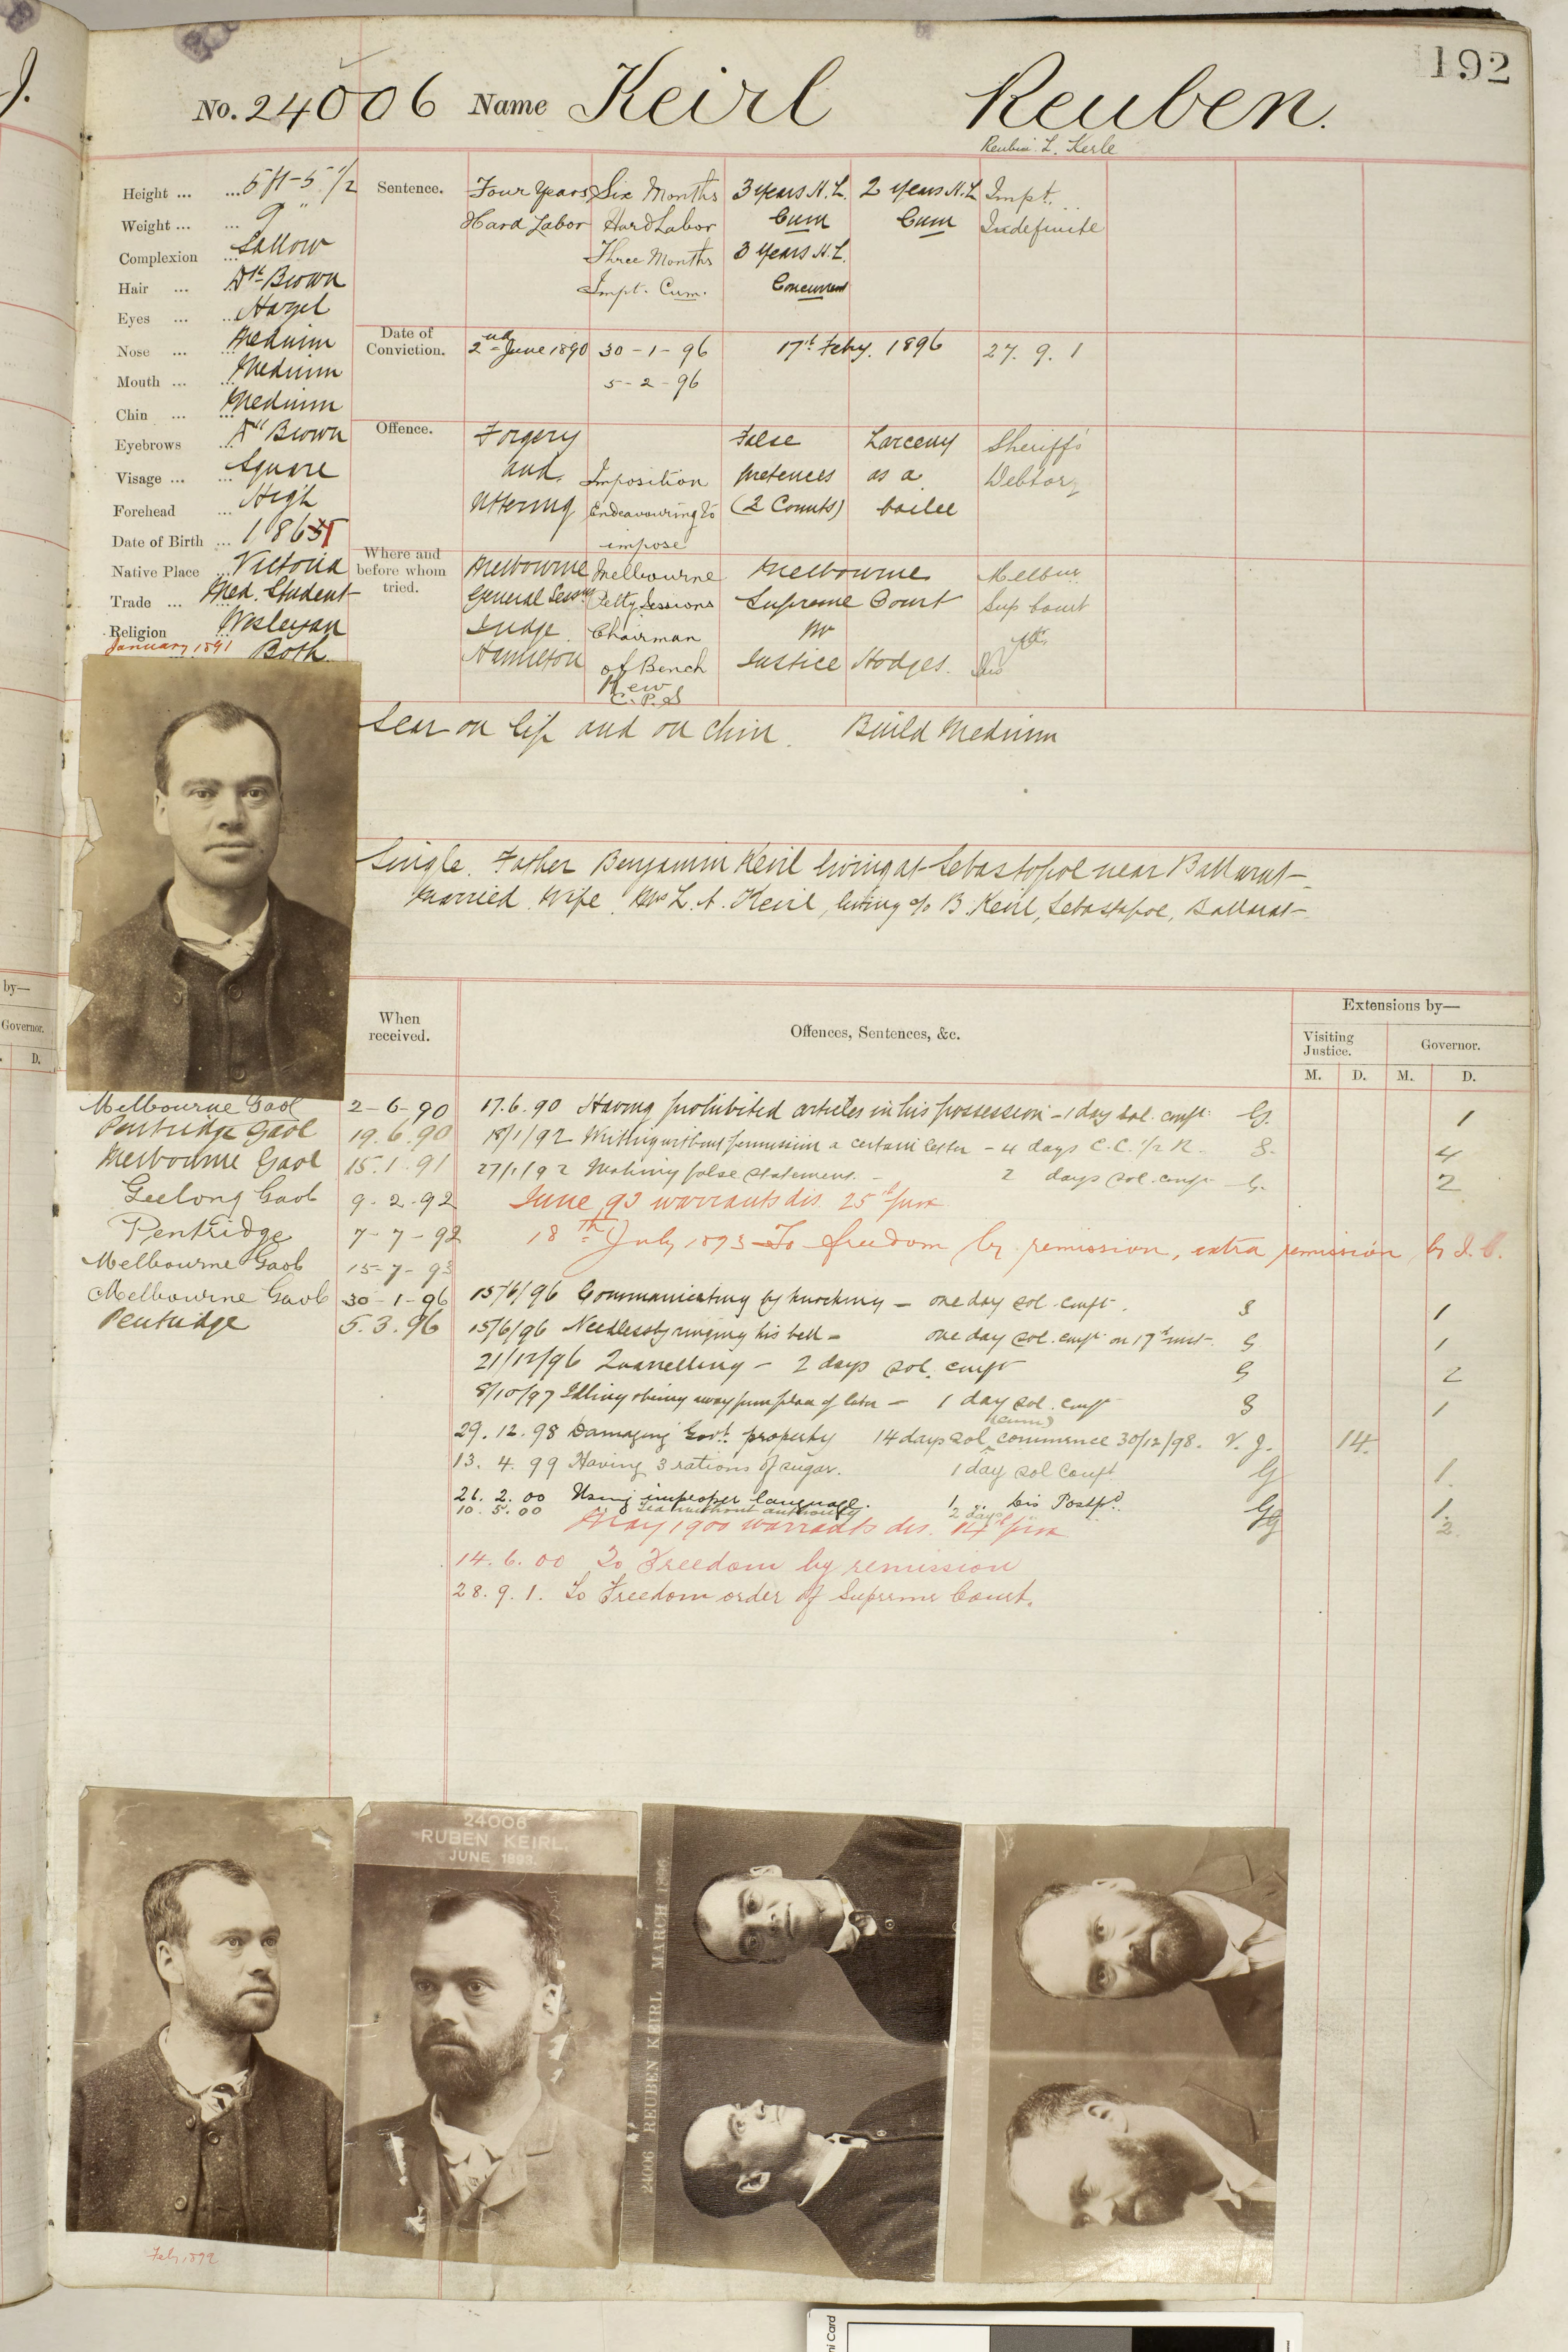 192
No. 24006 Name Keirl Reuben.
L. Kerle
Height ... ... 5 ft - 5 1/2
Weight ... ... 9
Complexion ... Sallow
Hair ... Dk Brown
Eyes ... ... Hazel
Nose ... ... Medium
Mouth ... ... Medium
Chin ... ... Medium
Eyebrows ... Dk Brown
Visage ... ... Square
Forehead ... High
Date of Birth ... 186
Native Place ... Victoria
Trade ... Med. Student
Religion Wesleyan
January 1891 Both
Sentence.
Four Years
Hard Labor
Six Months
Hard Labor
Three Months
Impt. Cum.
3 years H.L.
Cum
3 years H.L.
Concurrent
2 years H.L
Cum
Impt.
Indefinite
Date of
Conviction.
2nd June 1890
30-1-96
5-2-96
17th Feby. 1896
27. 9. 1
Offence.
Forgery
and
Uttering
Imposition
Endeavouring to
impose
False
pretences
(2 Counts)
Larceny
as a
bailee
Sheriffs
Debtor
Where and
before whom
tried.
Melbourne
General Sess
Judge
Hamilton
Melbourne
Petty Sessions
Chairman
of Bench
Kew
C.P.S
Melbourne
Supreme Court
Mr
Justice Hodges.
Melbne
Sup Court
Scar on lip and on chin. Build Medium
Single. Father Benjamin Keirl living at Sebastopol near Ballarat
Married. Wife. Mrs L. A. Keirl, living c/o B. Keirl, Sebastopol, Ballarat
by—
Governor.
D.
When
received.
Offences, Sentences, &c.
Extensions by—
Visiting
Justice.
Governor.
M. D. M. D.
Melbourne Gaol 2-6-90 17.6.90 Having prohibited articles in his possession - 1 day sol. conft. G. 1
Pentridge Gaol 19.6.90 18/1/92 Writing without permission a certain letter - 4 days C.C. 1/2 R. G. 4
Melbourne Gaol 15.1.91 27/1/92 Making false statement - 2 days sol. conft G. 2
Geelong Gaol 9.2.92 June 93 warrants dis. 25
Pentridge 7-7-92 18th July 1893 To freedom by remission, extra remission by I. G.
Melbourne Gaol 15-7-93
Melbourne Gaol 30-1-96 15/6/96 Communicating by knocking - one day sol. conft. G 1
Pentridge 5.3.96 15/6/96 Needlessly ringing his bell - one day sol. conft on 17th inst. G 1
21/12/96 Quarrelling - 2 days sol. conft G 2
8/10/97 Idling & being away from place of labor - 1 day sol. conft G 1
29.12.98 Damaging Govt. property 14 days sol (cum) commence 30/12/98. V. J. 14
13. 4. 99 Having 3 rations of sugar. 1 day sol conft G 1.
26. 2. 00 Using improper language. 1 " dis Postpd. G 1.
10. 5. 00 without authority 2 days G 2.
May 1900 warrants dis. 14
14. 6. 00 To Freedom by remission
28. 9. 1. To Freedom order of Supreme Court.
24006
RUBEN KEIRL.
JUNE 1893.
24006 REUBEN KEIRL MARCH 1896
Feby 1892